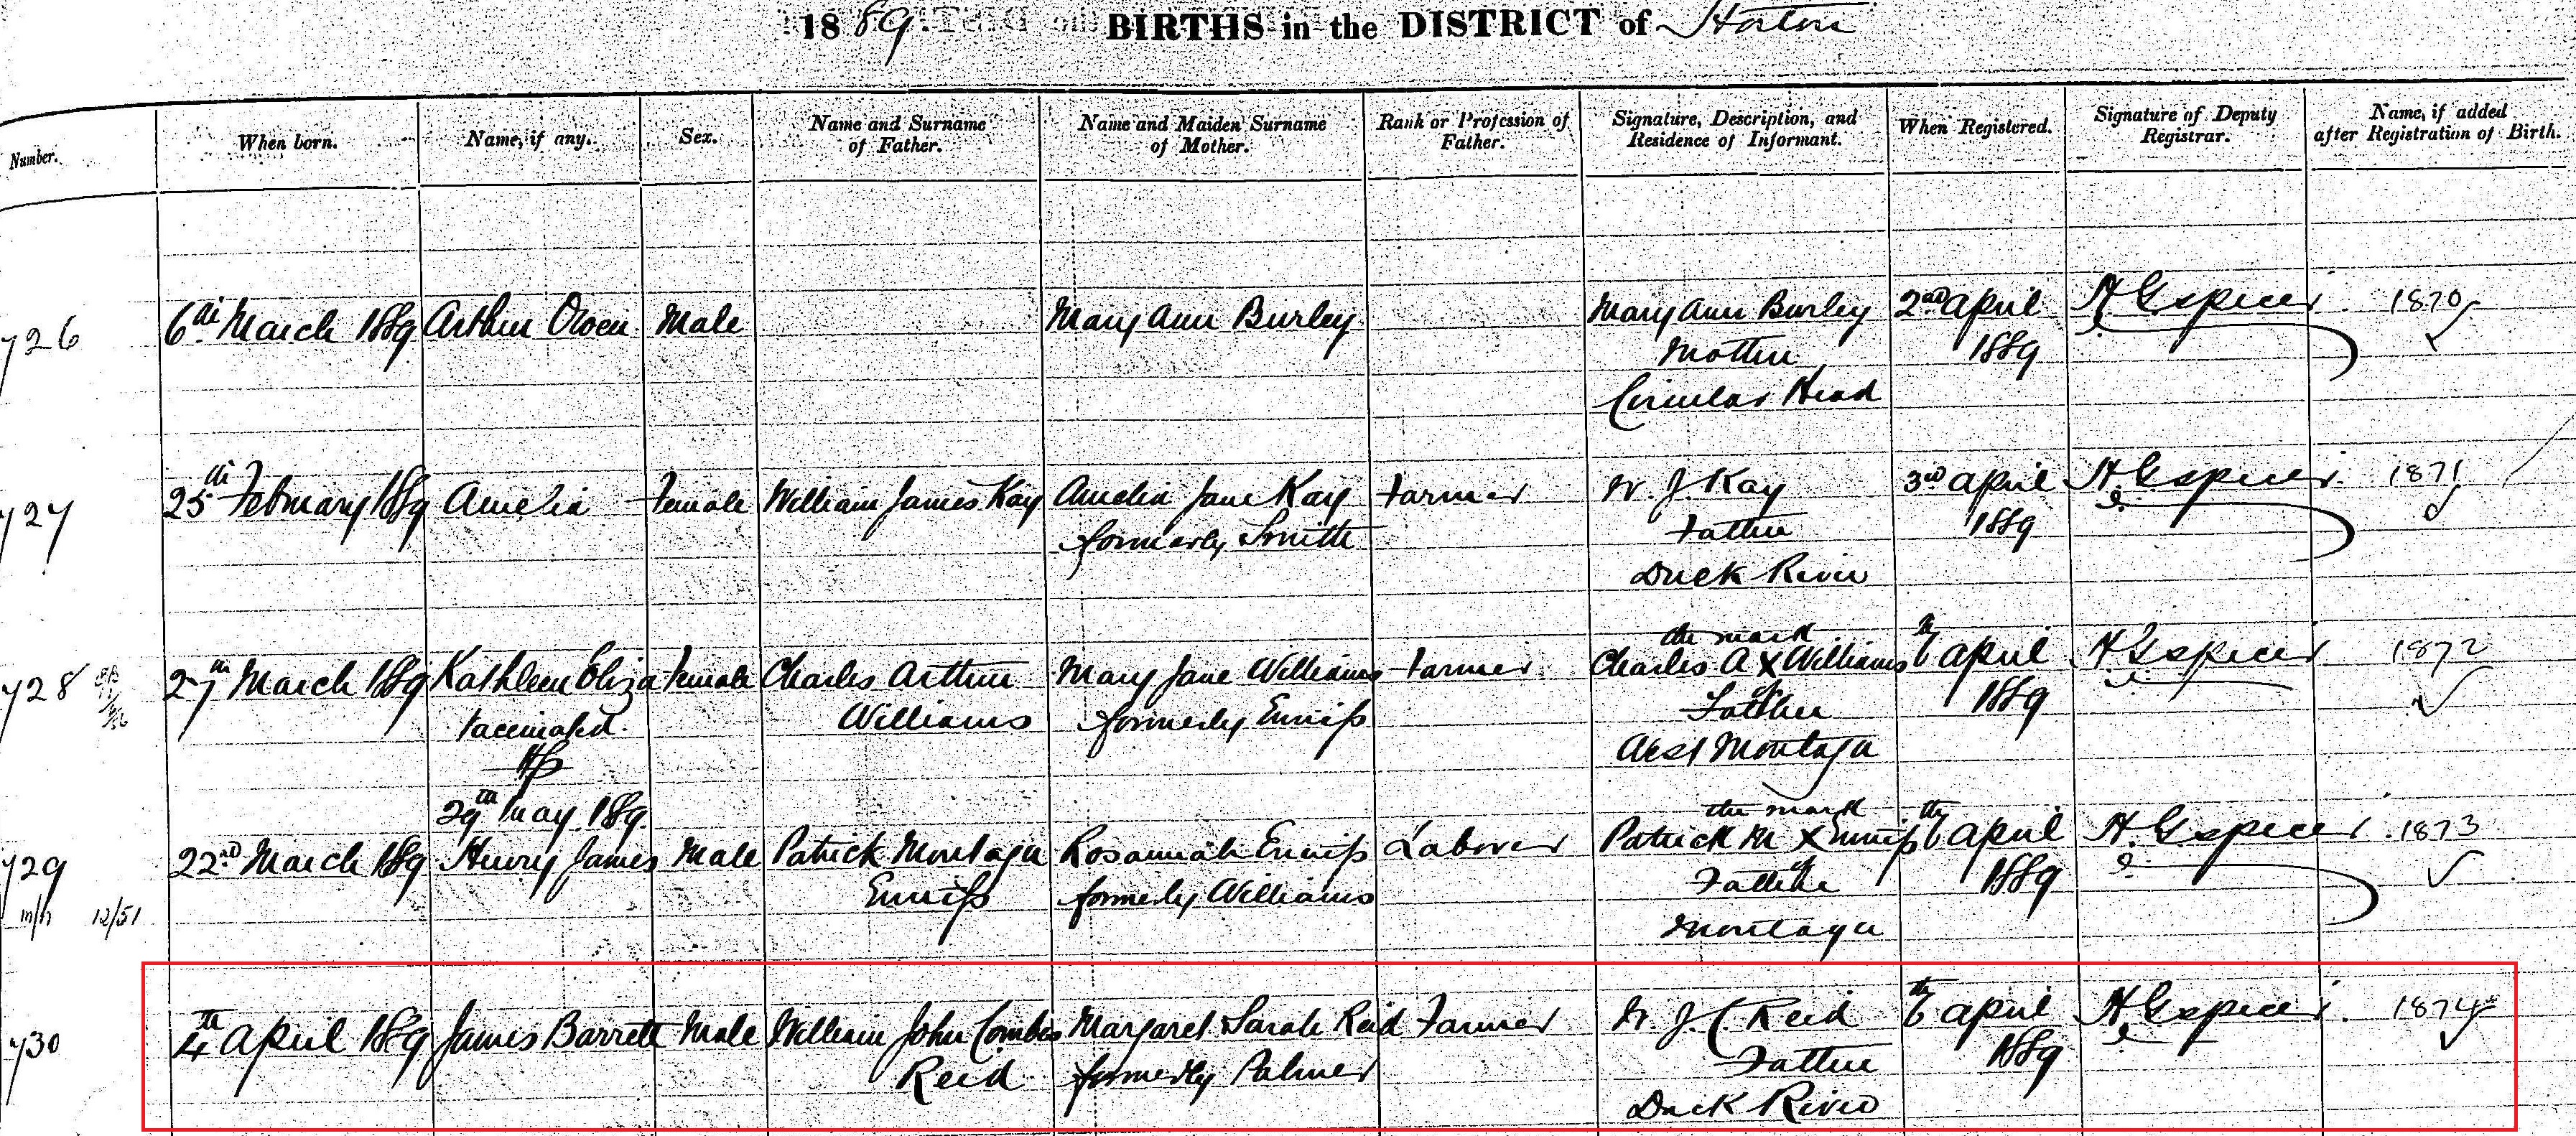 1889. BIRTHS in the DISTRICT of Horton
Number. When born. Name, if any. Sex. Name and Surname of Father. Name and Maiden Surname of Mother. Rank or Profession of Father. Signature, Description, and Residence of Informant. When Registered. Signature of Deputy Registrar. Name, if added after Registration of Birth.
726 6th March 1889 Arthur Owen Male Mary Ann Burley Mary Ann Burley 2nd April H G Spicer 1870
Mother 1889
Circular Head
727 25th February 1889 Amelia Female William James Kay Amelia Jane Kay Farmer W. J. Kay 3rd April H. G Spicer 1871
formerly Smith Father 1889
Duck River
the mark
728 27th March 1889 Kathleen Eliza Female Charles Arthur Mary Jane Williams Farmer Charles A X Williams 6th April H G Spicer 1872
vaccinated. Williams formerly Enniss of Father 1889
HS West Montagu
29th May 1889 the mark
729 22nd March 1889 Henry James Male Patrick Montagu Rosannah Enniss Laborer Patrick M X Enniss 6th April H. G Spicer 1873
m/h 12/51 Enniss formerly Williams of Father 1889
Montagu
730 4th April 1889 James Barrett Male William John Combes Margaret Sarah Reid Farmer W. J. C Reid 6th April H. G Spicer 1874
Reid formerly Palmer Father 1889
Duck River